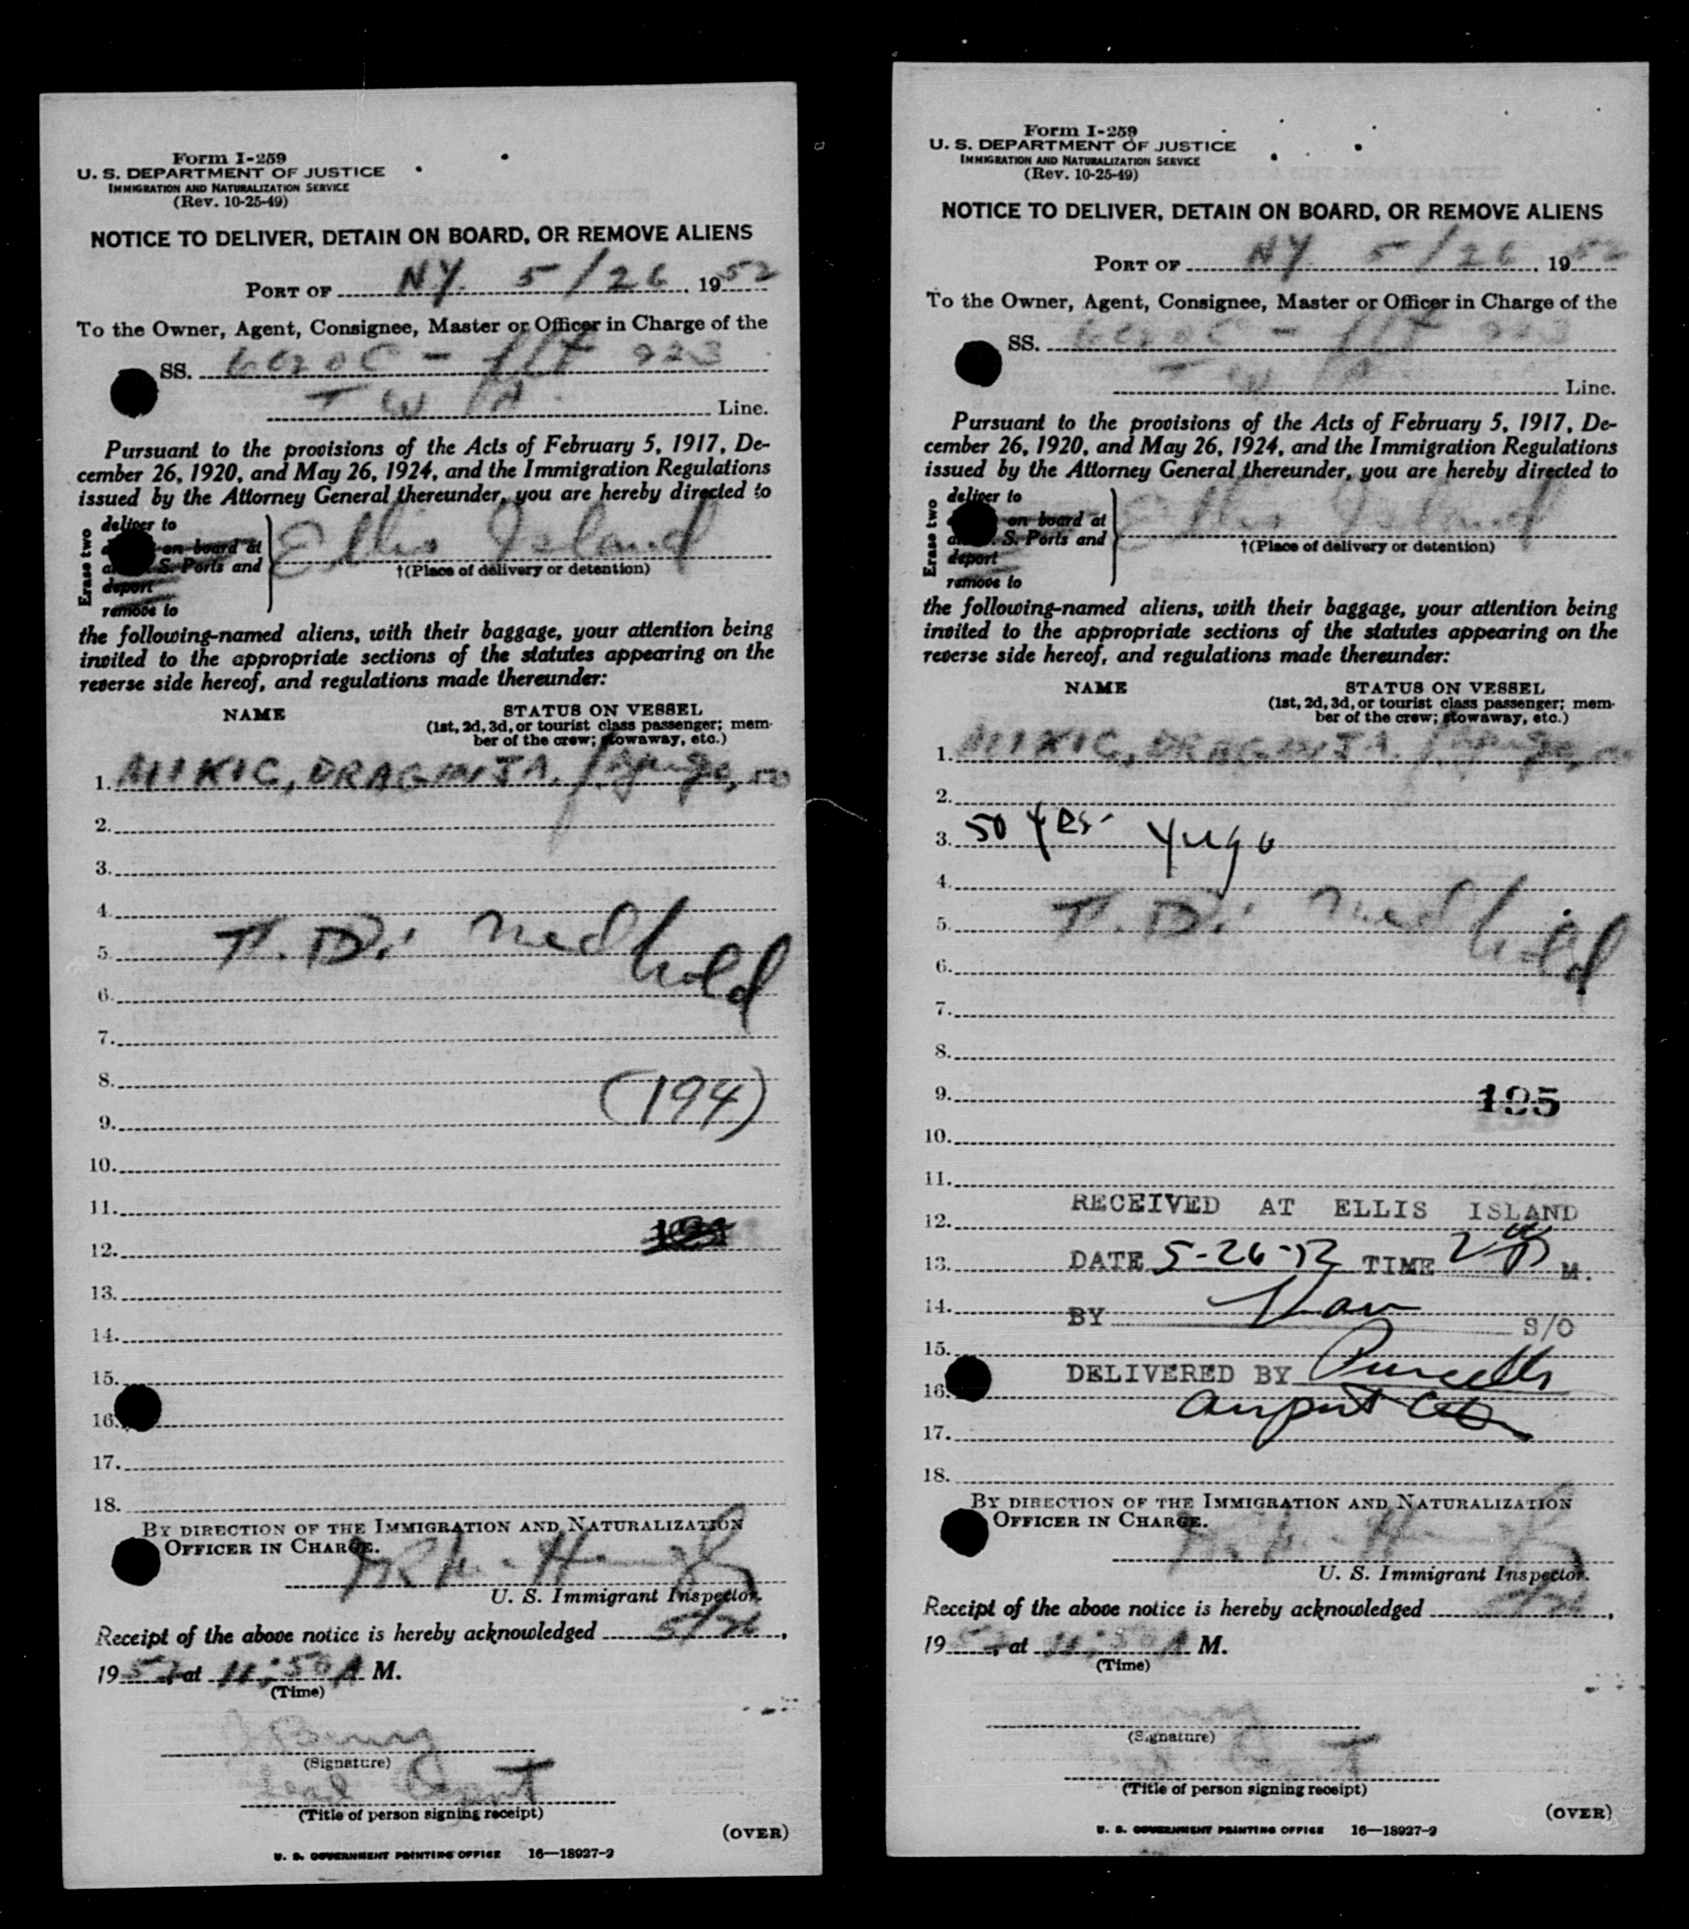 Form I-259
U. S. DEPARTMENT OF JUSTICE
IMMIGRATION AND NATURALIZATION SERVICE
(Rev. 10-25-49)
NOTICE TO DELIVER, DETAIN ON BOARD, OR REMOVE ALIENS
PORT OF NY. 5/26, 1952
To the Owner, Agent, Consignee, Master or Officer in Charge of the
SS. flt 923
T W A Line.
Pursuant to the provisions of the Acts of February 5, 1917, De-
cember 26, 1920, and May 26, 1924, and the Immigration Regulations
issued by the Attorney General thereunder, you are hereby directed to
Erase two
deliver to
on board at
S. Ports and
deport
remove to
Ellis Island
†(Place of delivery or detention)
the following-named aliens, with their baggage, your attention being
invited to the appropriate sections of the statutes appearing on the
reverse side hereof, and regulations made thereunder:
NAME STATUS ON VESSEL
(1st, 2d, 3d, or tourist class passenger; mem-
ber of the crew; stowaway, etc.)
1. MIKIC, DRAGINJA.
2.
3.
4.
5. T. D. med hold
6.
7.
8.
9. (194)
10.
11.
12.
13.
14.
15.
16.
17.
18.
BY DIRECTION OF THE IMMIGRATION AND NATURALIZATION
OFFICER IN CHARGE.
U. S. Immigrant Inspector.
Receipt of the above notice is hereby acknowledged 5/26,
1952, at 11:50 A M.
(Time)
(Signature)
Lead Agent
(Title of person signing receipt)
(OVER)
U. S. GOVERNMENT PRINTING OFFICE 16—18927-2
Form I-259
U. S. DEPARTMENT OF JUSTICE
IMMIGRATION AND NATURALIZATION SERVICE
(Rev. 10-25-49)
NOTICE TO DELIVER, DETAIN ON BOARD, OR REMOVE ALIENS
PORT OF NY 5/26, 1952
To the Owner, Agent, Consignee, Master or Officer in Charge of the
SS. flt 923
T W A Line.
Pursuant to the provisions of the Acts of February 5, 1917, De-
cember 26, 1920, and May 26, 1924, and the Immigration Regulations
issued by the Attorney General thereunder, you are hereby directed to
Erase two
deliver to
on board at
S. Ports and
deport
remove to
Ellis Island
†(Place of delivery or detention)
the following-named aliens, with their baggage, your attention being
invited to the appropriate sections of the statutes appearing on the
reverse side hereof, and regulations made thereunder:
NAME STATUS ON VESSEL
(1st, 2d, 3d, or tourist class passenger; mem-
ber of the crew; stowaway, etc.)
1. MIKIC, DRAGINJA.
2.
3. 50 yrs. Yugo
4.
5. T. D. med hold
6.
7.
8.
9. 195
10.
11.
12. RECEIVED AT ELLIS ISLAND
13. DATE 5-26-52 TIME M.
14. BY S/O
15.
16. DELIVERED BY
17.
18.
BY DIRECTION OF THE IMMIGRATION AND NATURALIZATION
OFFICER IN CHARGE.
U. S. Immigrant Inspector.
Receipt of the above notice is hereby acknowledged 5/26,
1952, at 11:50 A M.
(Time)
(Signature)
(Title of person signing receipt)
(OVER)
U. S. GOVERNMENT PRINTING OFFICE 16—18927-2